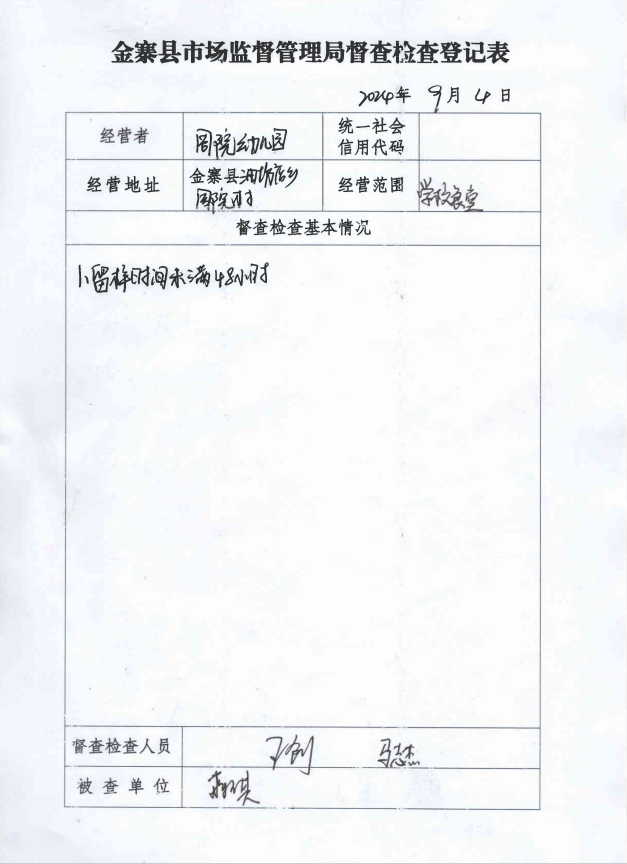 金寨县市场监督管理局督查检查登记表
2024年 9月 4日
经营者
周院幼儿园
统一社会
信用代码
经营地址
金寨县油坊店乡
周院村
经营范围
学校食堂
督查检查基本情况
1、留样时间未满48小时
督查检查人员
马志杰
被查单位